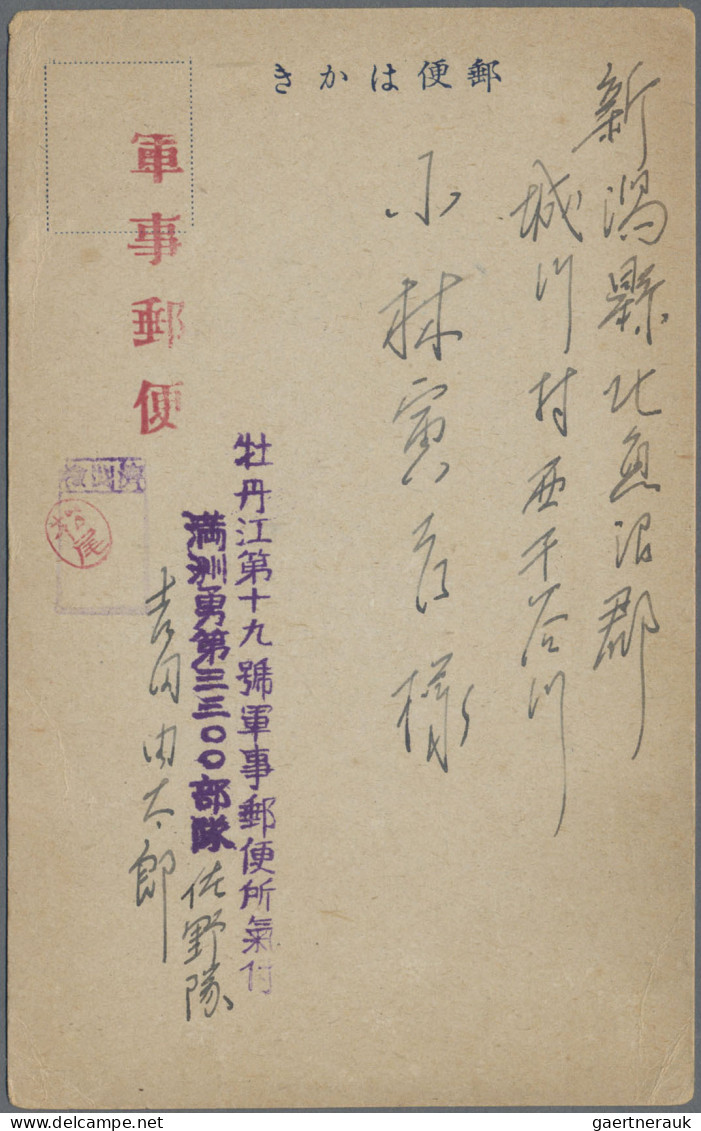 郵便はかき
新潟縣北魚沼郡
城川村西千谷川
小林寅吉様
軍事郵便
牡丹江第十九號軍事郵便所氣付
満洲勇第三三〇〇部隊
佐野隊
吉田由太郎
検閲済
松尾
gaertnerauk